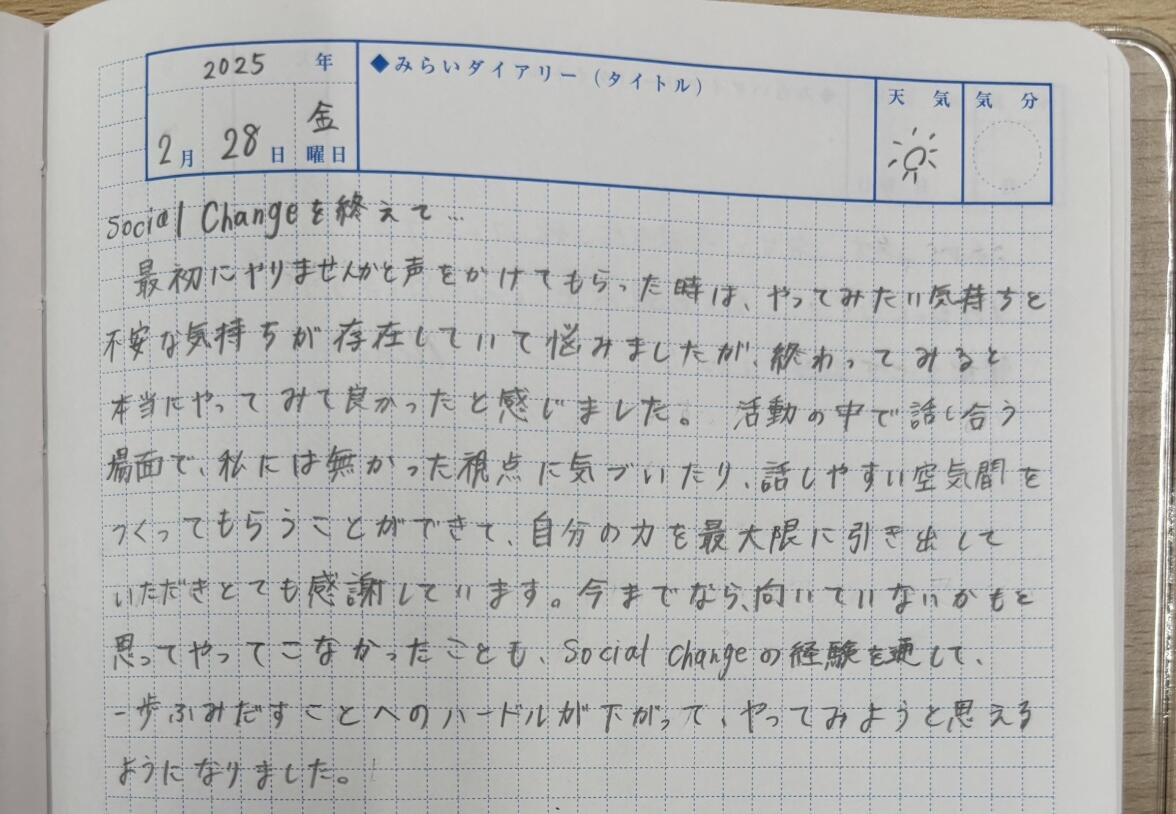 2025 年
2月 28日 金曜日
◆みらいダイアリー(タイトル)
天気
気分
Social Changeを終えて…
最初にやりませんかと声をかけてもらった時は、やってみたい気持ちと
不安な気持ちが存在していて悩みましたが、終わってみると
本当にやってみて良かったと感じました。活動の中で話し合う
場面で、私には無かった視点に気づいたり、話しやすい空気間を
つくってもらうことができて、自分の力を最大限に引き出して
いただきとても感謝しています。今までなら、向いていないかもと
思ってやってこなかったことも、Social Changeの経験を通して、
一歩ふみだすことへのハードルが下がって、やってみようと思える
ようになりました。